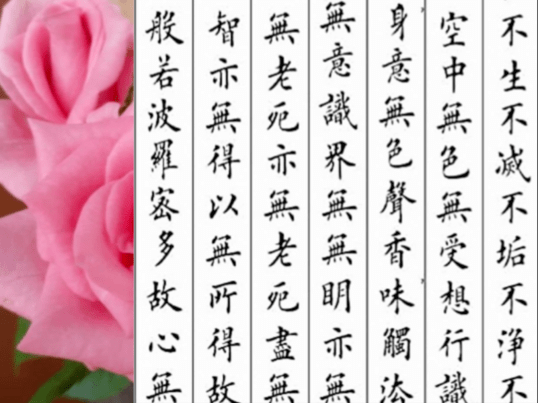 不生不滅不垢不淨不
空中無色無受想行識
身意無色聲香味觸法
無意識界無無明亦無
無老死亦無老死盡無
智亦無得以無所得故
般若波羅密多故心無